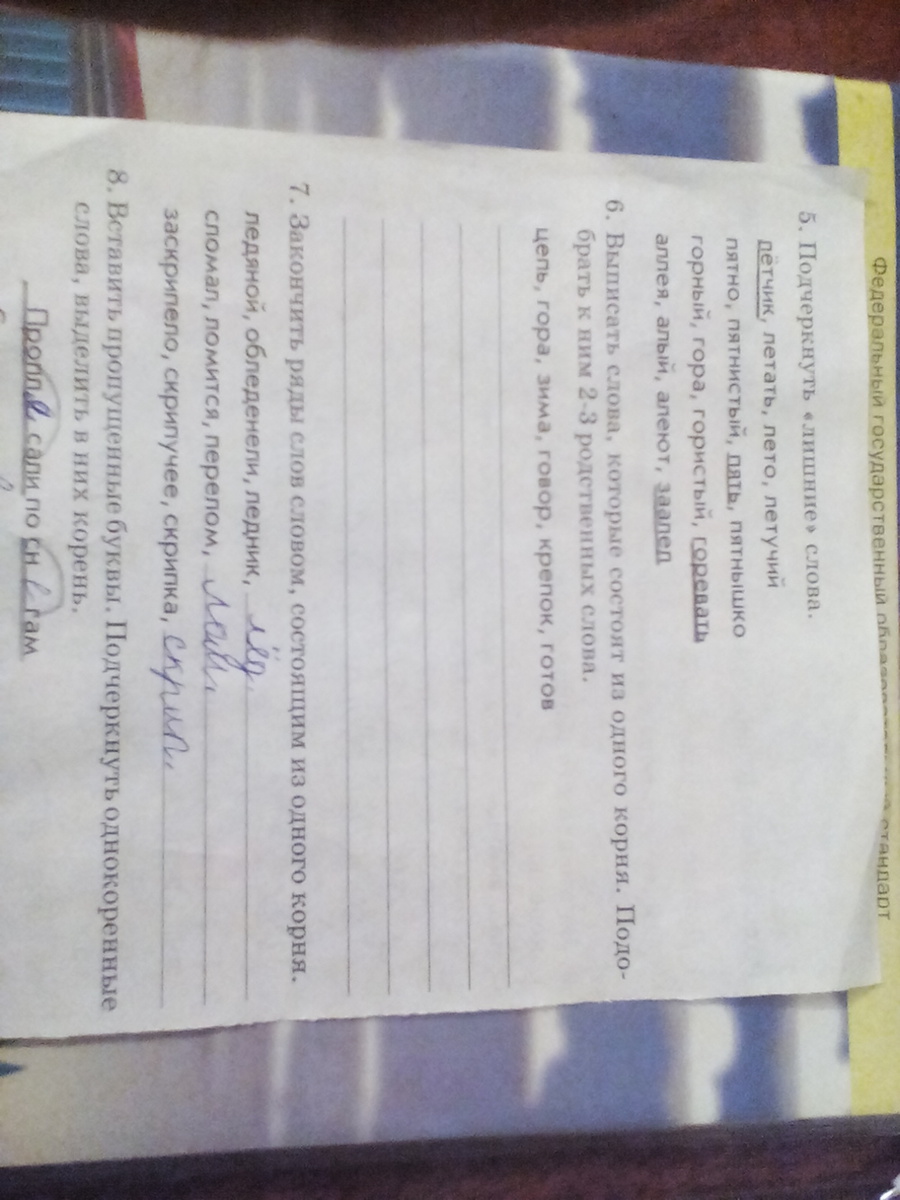 Федеральный государственный образовательный стандарт
5. Подчеркнуть «лишние» слова.
лётчик, летать, лето, летучий
пятно, пятнистый, пять, пятнышко
горный, гора, гористый, горевать
аллея, алый, алеют, заалел
6. Выписать слова, которые состоят из одного корня. Подо-
брать к ним 2-3 родственных слова.
цепь, гора, зима, говор, крепок, готов
7. Закончить ряды слов словом, состоящим из одного корня.
ледяной, обледенели, ледник, лёд.
сломал, ломится, перелом, лом.
заскрипело, скрипучее, скрипка, скрип.
8. Вставить пропущенные буквы. Подчеркнуть однокоренные
слова, выделить в них корень.
сали по сн гам